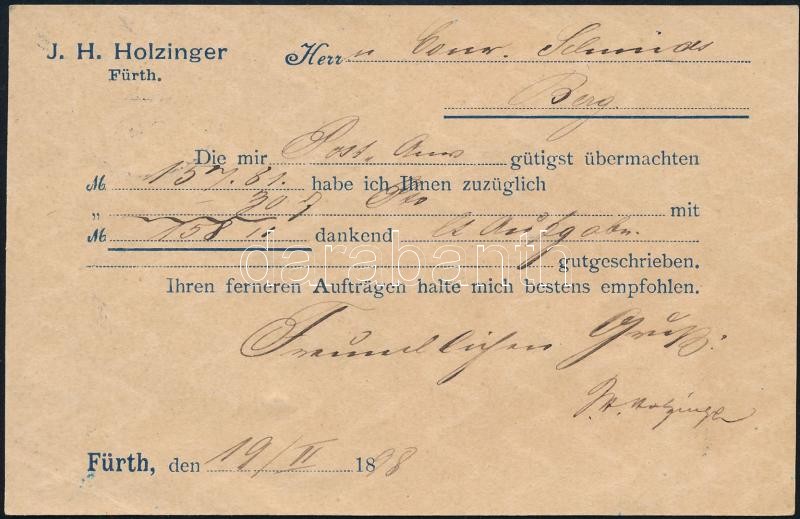 J. H. Holzinger
Fürth.
Herrn Conr. Schmidt
Berg.
Die mir Post-Anw gütigst übermachten
M 157.81. habe ich Ihnen zuzüglich
„ – 30 mit
M 158 11 dankend lt Aufgabe.
gutgeschrieben.
Ihren ferneren Aufträgen halte mich bestens empfohlen.
Freundlichen Gruß.
J. H. Holzinger
Fürth, den 19/II 1898
darabanth